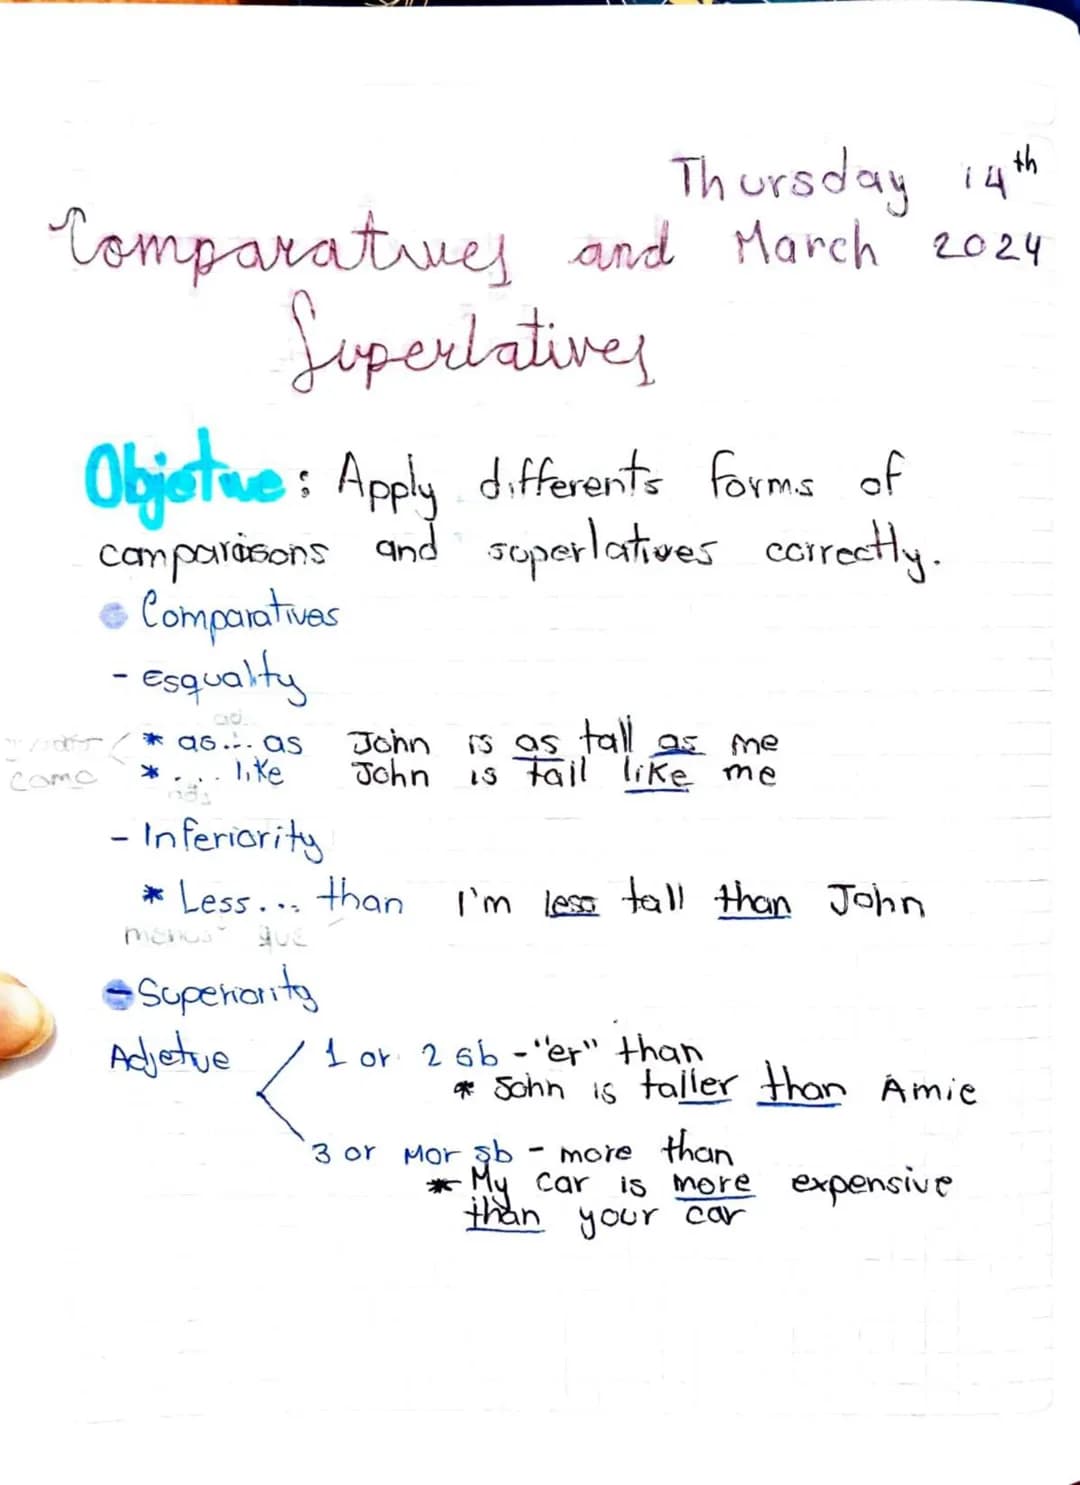 Thursday 14th
Comparatives and March 2024
Superlatives
Objetive: Apply differents forms of
comparaisons and superlatives correctly.
Comparatives
- Esquality
ad
* as... as John is as tall as me
como * .... like John is tall like me
- Inferiority
* Less.... than I'm less tall than John
menos que
- Superiority
Adjetive 1 or 2 sb - "er" than
* John is taller than Amie
3 or Mor sb - more than
* My car is more expensive
than your car